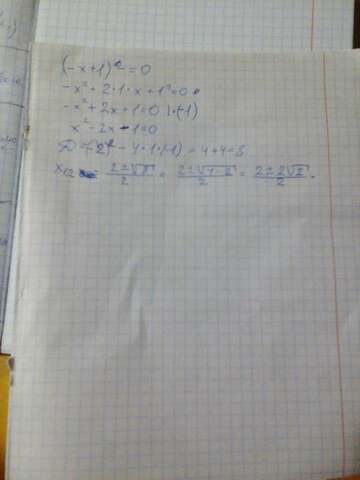 (-x+1)²=0
-x²+2·1·x+1²=0
-x²+2x+1=0 |·(-1)
x²-2x-1=0
D=(-2)²-4·1·(-1)=4+4=8
x₁,₂= (2±√8)/2 = (2±√4·2)/2 = (2±2√2)/2 .